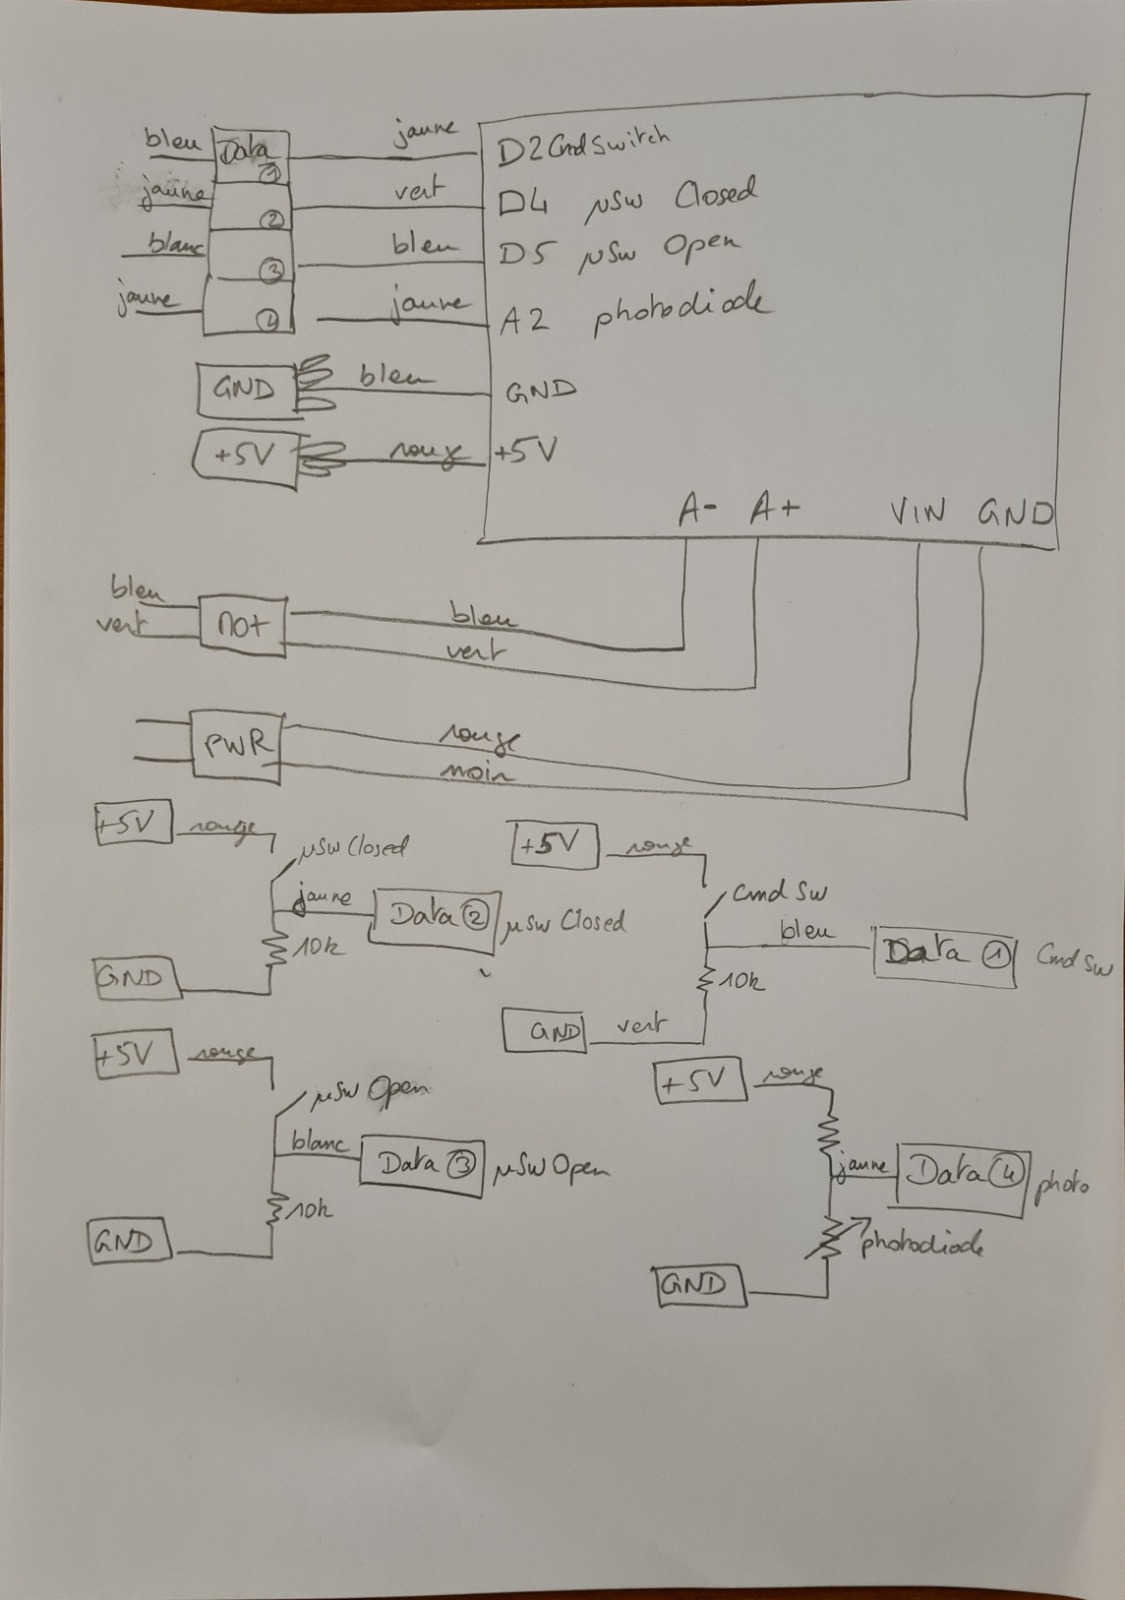 bleu Data ① jaune D2 Cmd Switch
jaune ② vert D4 µSw Closed
blanc ③ bleu D5 µSw Open
jaune ④ jaune A2 photodiode
GND bleu GND
+5V rouge +5V
A- A+ VIN GND
bleu
vert mot bleu
vert
PWR rouge
noir
+5V rouge
µSw Closed
jaune Data ② µSw Closed
10k
GND
+5V rouge
Cmd Sw
bleu Data ① Cmd Sw
10k
GND vert
+5V rouge
µSw Open
blanc Data ③ µSw Open
10k
GND
+5V rouge
jaune Data ④ photo
photodiode
GND